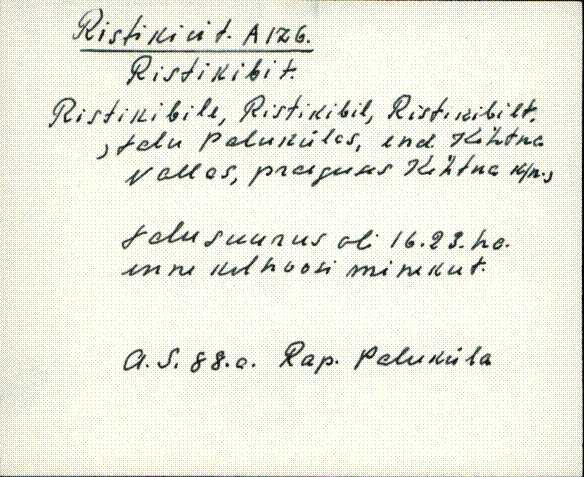 Ristikivit. A 126.
Ristikibit.
Ristikibile, Ristikibil, Ristikibilt.
, talu Palukülas, end. Kehtna
Vallas, praeguses Kehtna k/n.,
talu suurus oli 16.23. ha.
enne kolhoosi minekut.
A. S. 88. a. Rap. Paluküla